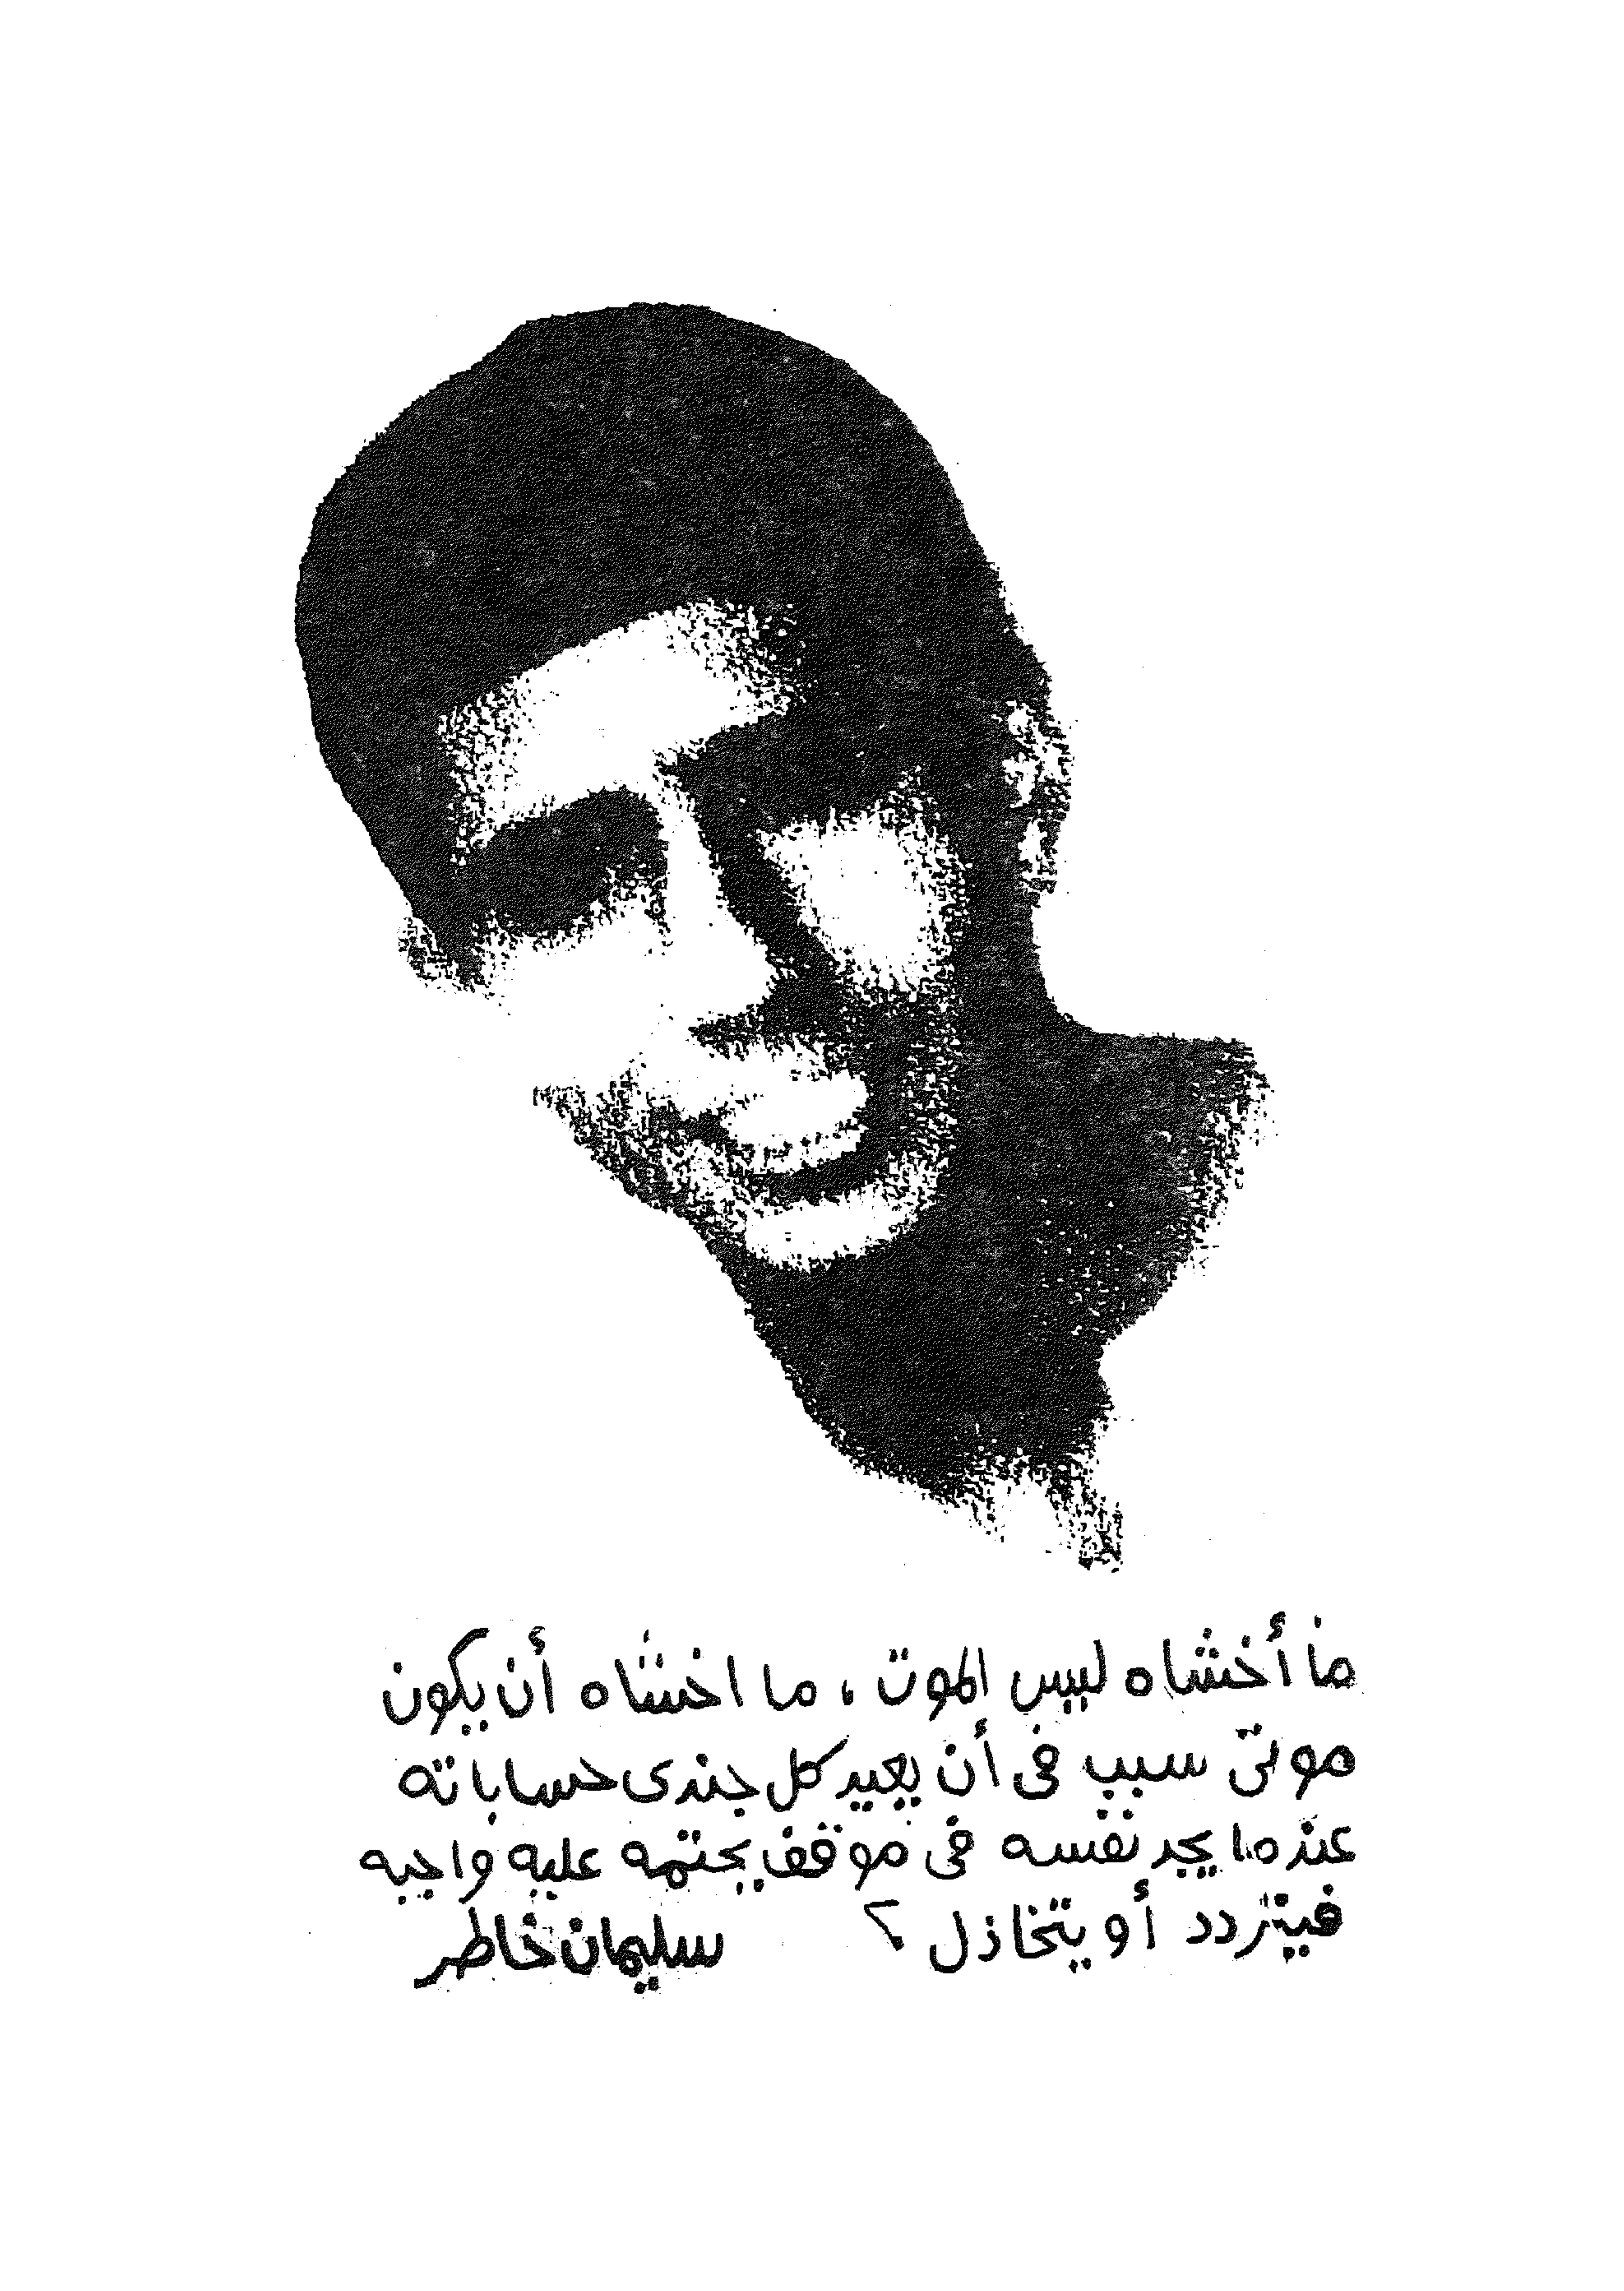 ما أخشاه ليس الموت ، ما اخشاه أن يكون
موتى سبب فى أن يعيد كل جندى حساباته
عندما يجد نفسه فى موقف يحتمه عليه واجبه
فيتردد أو يتخاذل ؟ سليمان خاطر